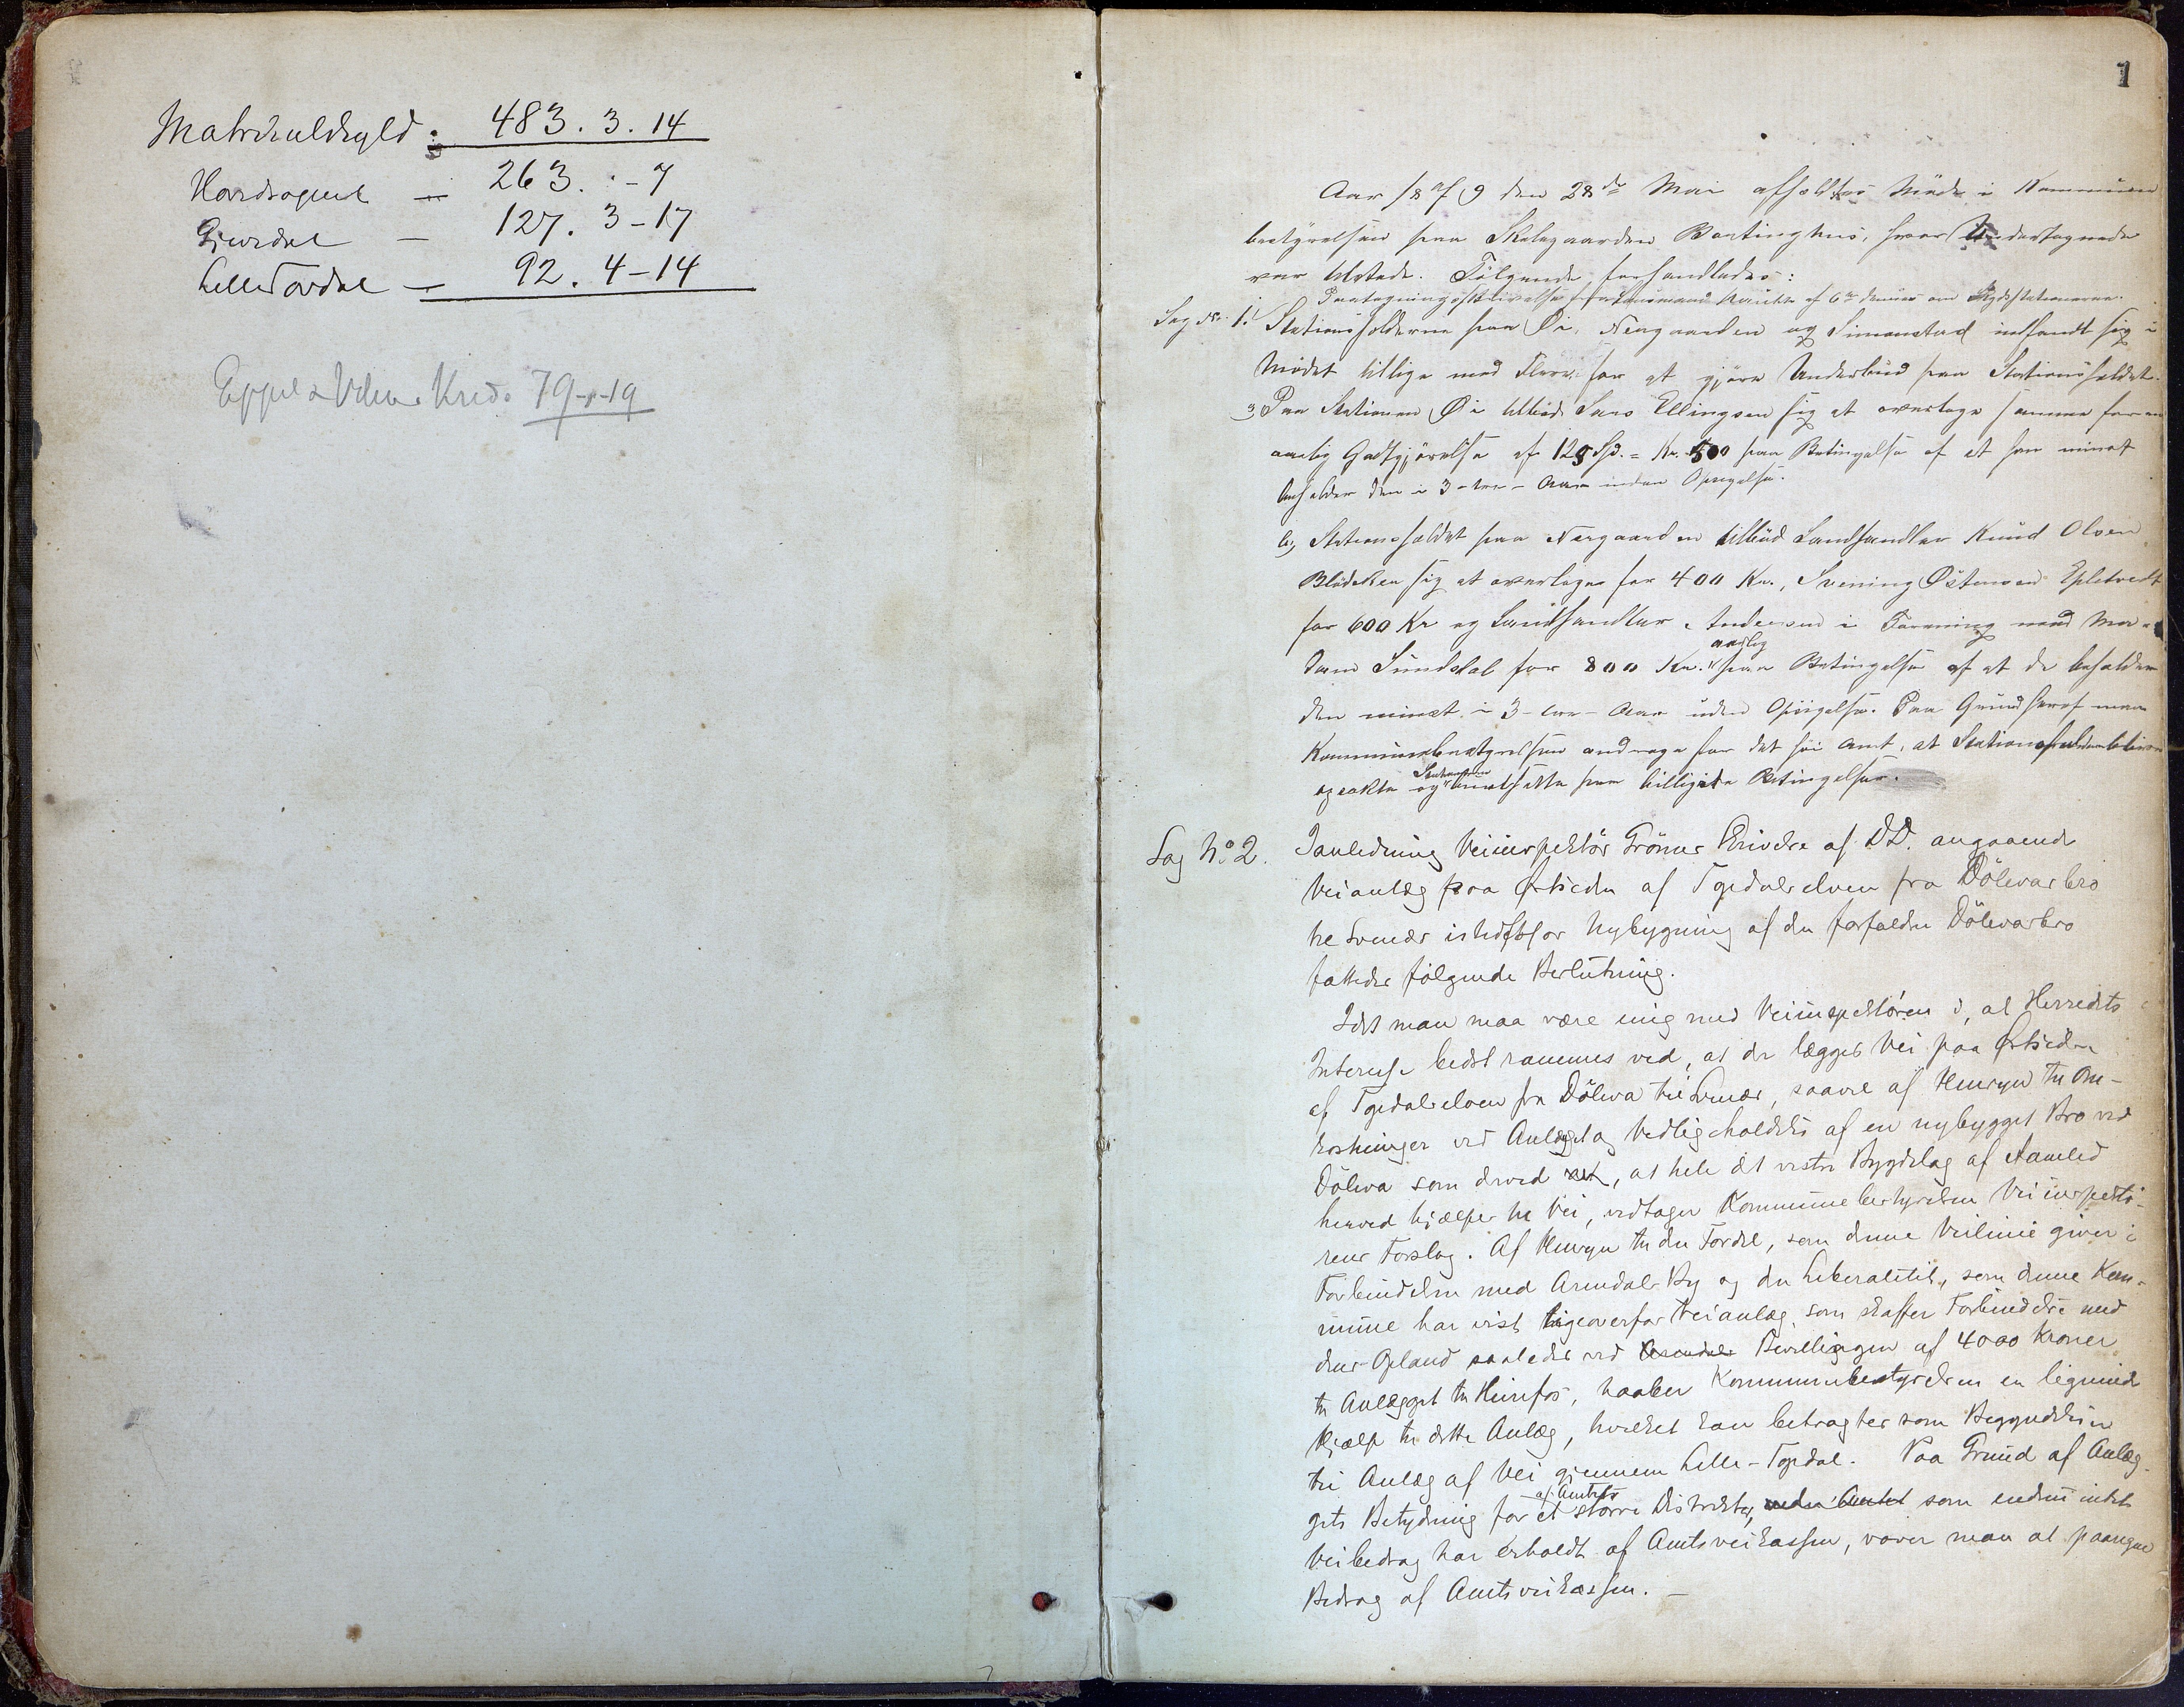 Matrikulskyld: 483. 3. 14
Hovedsognet — 263. " - 7
Gjevedal — 127. 3 - 17
Lille Topdal — 92. 4 - 14
79 - 1 - 19
1
Aar 1879 den 28de Mai afholdtes Møde i Kommune
bestyrelsen paa Skeleggaarden Baastinghus, hvor Undertegnede
var tilstede. Følgende forhandledes:
Paategningsskrivelse fra Lensmand af 6te dennes om Skydsstationerne.
Sag No. 1. Stationsholderne paa Øi, Nergaarden og Simonstad indfandt sig i
Mødet tillige med Flere for at gjøre Underbud paa Stationsholdet.
a, Paa Stationen Øi tilbød Lars Ellingsen sig at overtage samme for en
aarlig Godtgjørelse af 125 Spd. = Kr. 500 paa Betingelse af at han mindst
beholder den i 3 - tre - Aar inden Opsigelse.
b, Stationsholdet paa Nergaarden tilbød Landhandler Knud Olsen
sig at overtage for 400 Kr., Svening Østensen Epletvedt
for 600 Kr og Landhandler Andersen i Forening med Ma-
dam Sunddal for 800 Kr. aarlig paa Betingelse af at de beholder
den mindst i 3 - tre - Aar uden Opsigelse. Paa Grund heraf maa
Kommunebestyrelsen andrage for det høie Amt, at Stationsholderne bliver
opsakte og ansatte paa billigste Betingelser.
Sag No. 2. I anledning Veiinspektør Grøners Skrivelse af D.D. angaaende
Veianlæg paa Østsiden af Topdalselven fra Dølevarbro
til Svenær istedetfor Nybygning af den forfaldne Dølevarbro
fattedes følgende Beslutning.
Idet man maa være enig med Veiinspektøren i, at Herredets
Interesse bedst rammes ved, at der lægges Vei paa Østsiden
af Topdalselven fra Døleva til Svenær, saavel af Hensyn til Om-
kostninger ved Anlægget og Vedligeholdelse af en nybygget Bro ved
Døleva som derved, at hele det vestre Bygdelag af Aamlid
herved hjælpes til Vei, vedtager Kommunebestyrelsen Veiinspektø-
rens Forslag. Af Hensyn til den Fordel, som denne Veilinie giver i
Forbindelse med Arendals By og den Liberalitet, som denne Kom-
mune har vist ligeoverfor Veianlæg, som skaffer Forbindelse med
dens Opland saaledes ved Arendals Bevillingen af 4000 Kroner
til Anlægget til Hinefos, haaber Kommunebestyrelsen en lignende
Hjælp til dette Anlæg, hvilket kan betragtes som Begyndelsen
til Anlæg af Vei gjennem Lille-Topdal. Paa Grund af Anlæg-
gets Betydning for et større af Amtets Distrikter, som endnu intet
Veibidrag har erholdt af Amtsveikassen, vover man at paaregne
Bidrag af Amtsveikassen. —